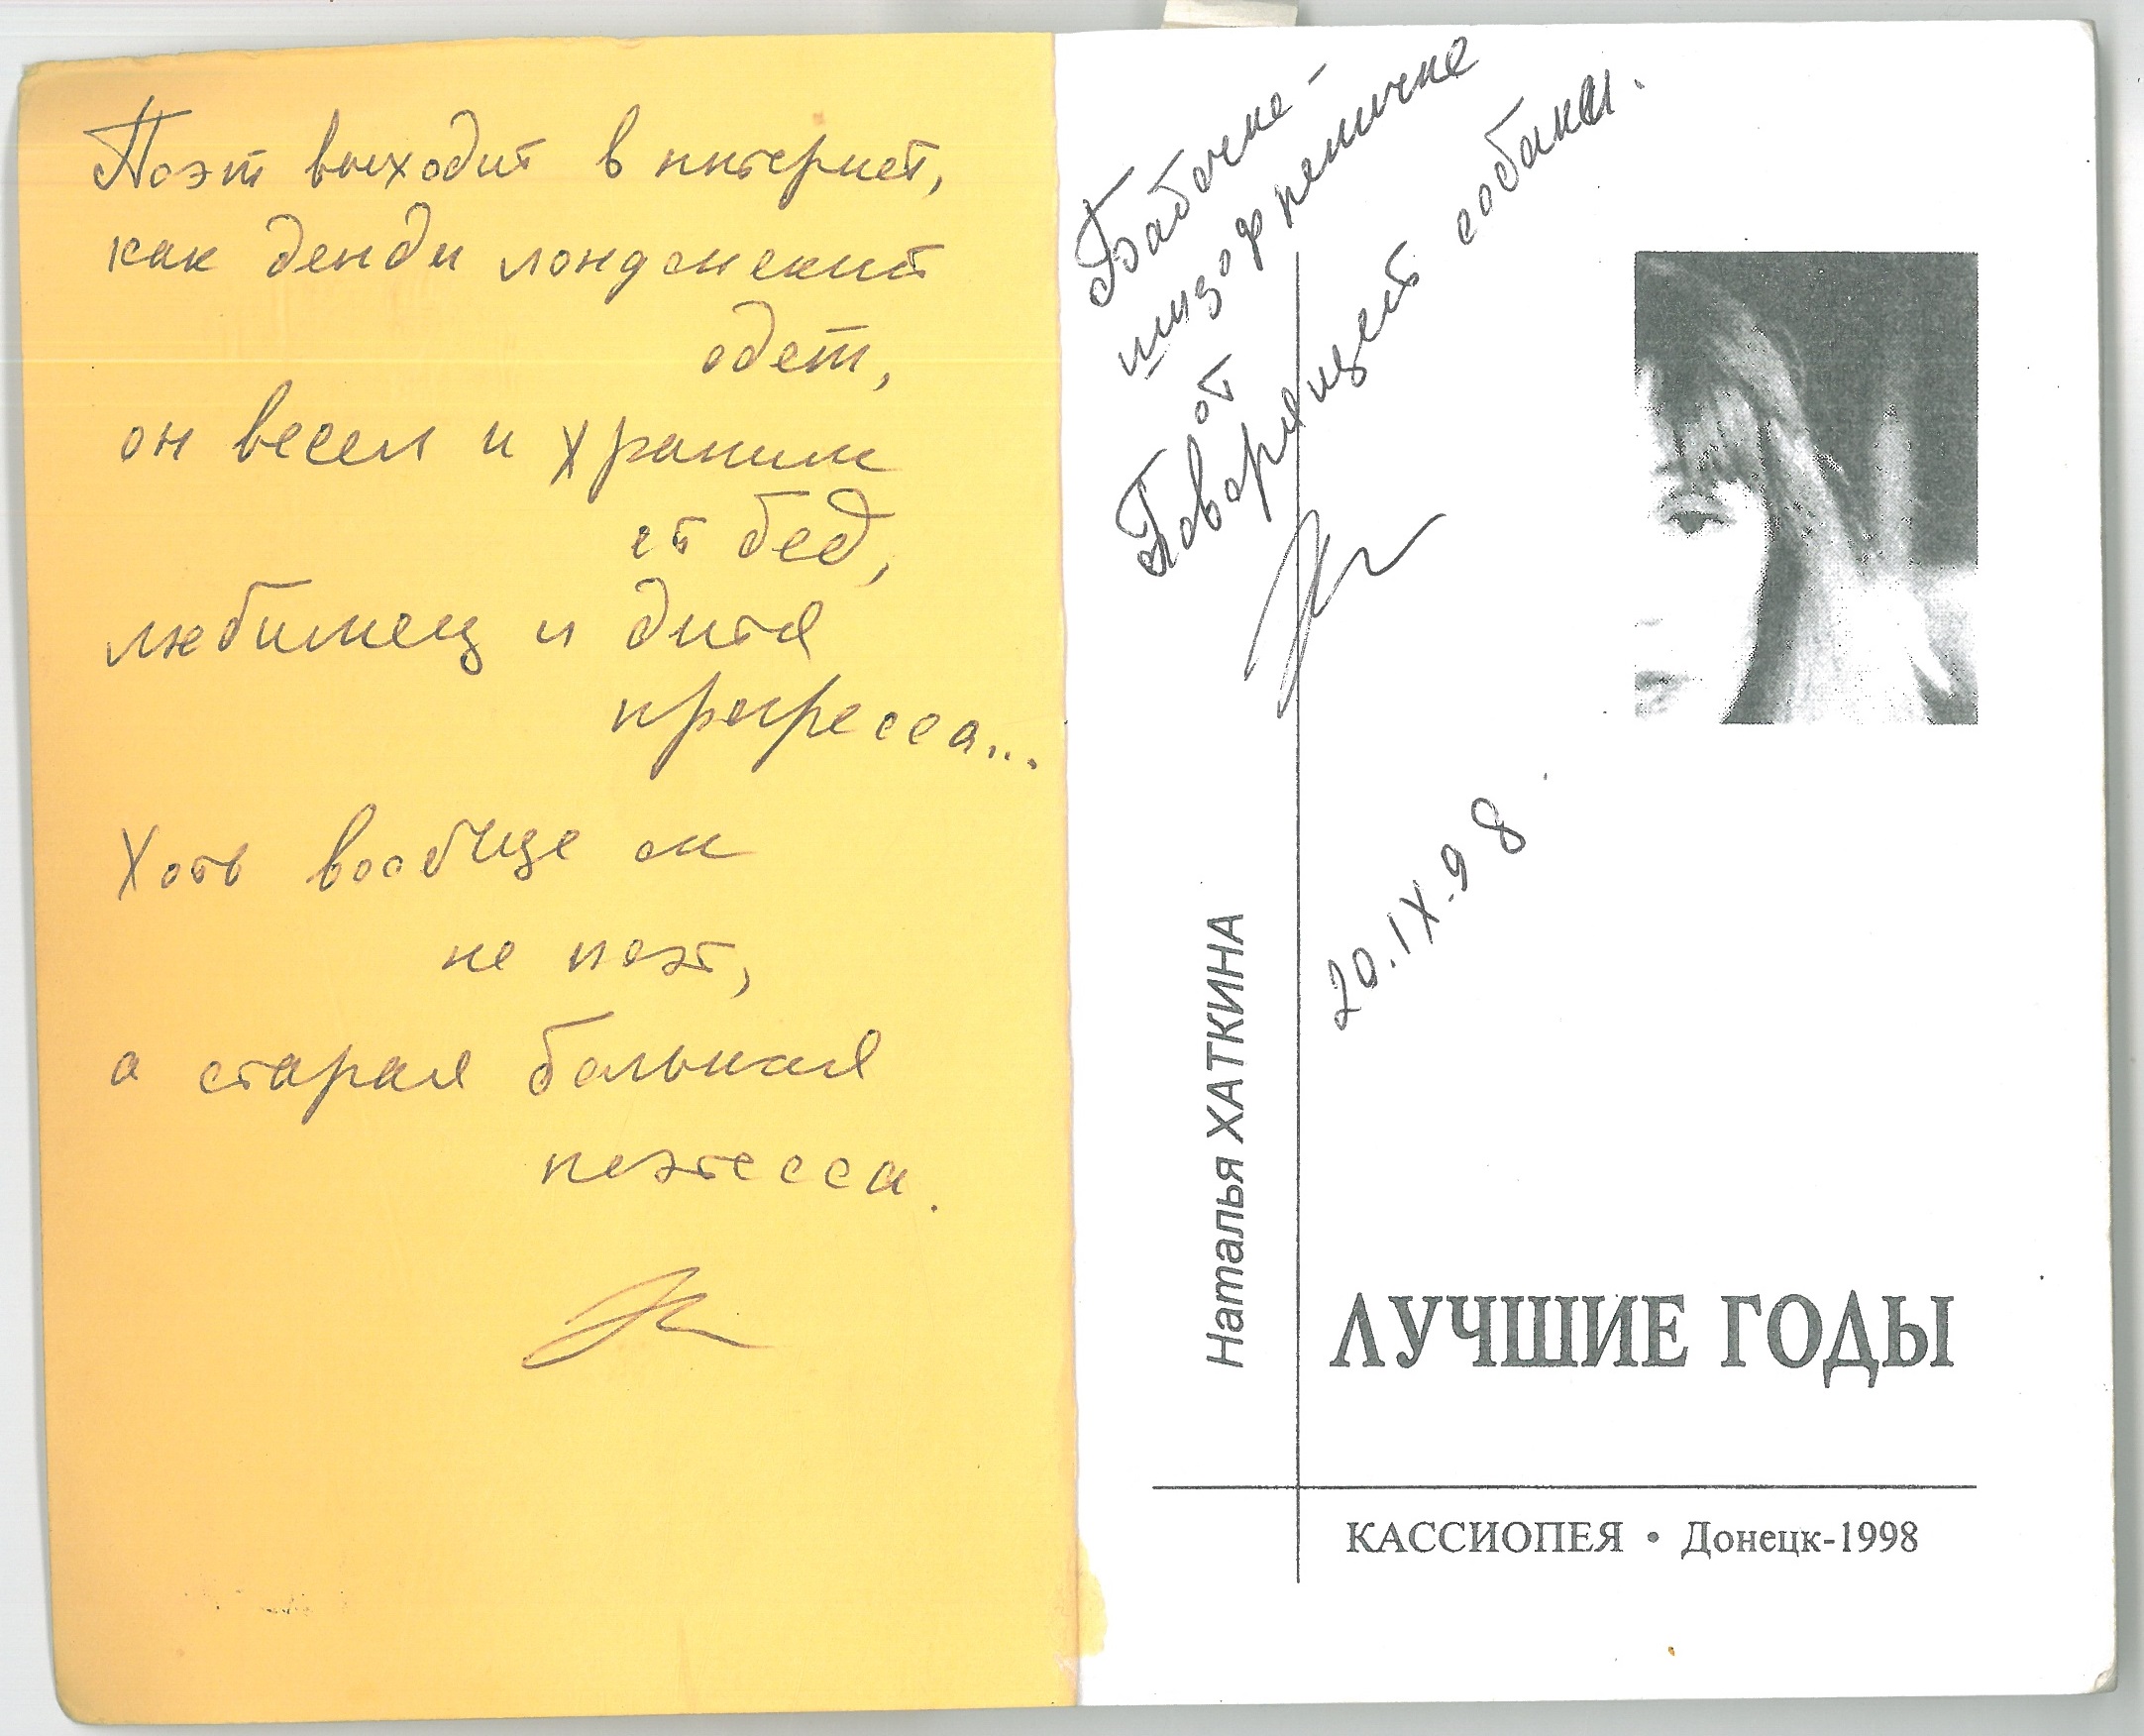 Поэт выходит в интернет,
как денди лондонский
одет,
он весел и храним
от бед,
любимец и дитя
прогресса...
Хоть вообще он
не поэт,
а старая больная
поэтесса.
Бабочке-
шизофреничке
от
Говорящей собаки.
20.IX.98
Наталья ХАТКИНА
ЛУЧШИЕ ГОДЫ
КАССИОПЕЯ • Донецк-1998